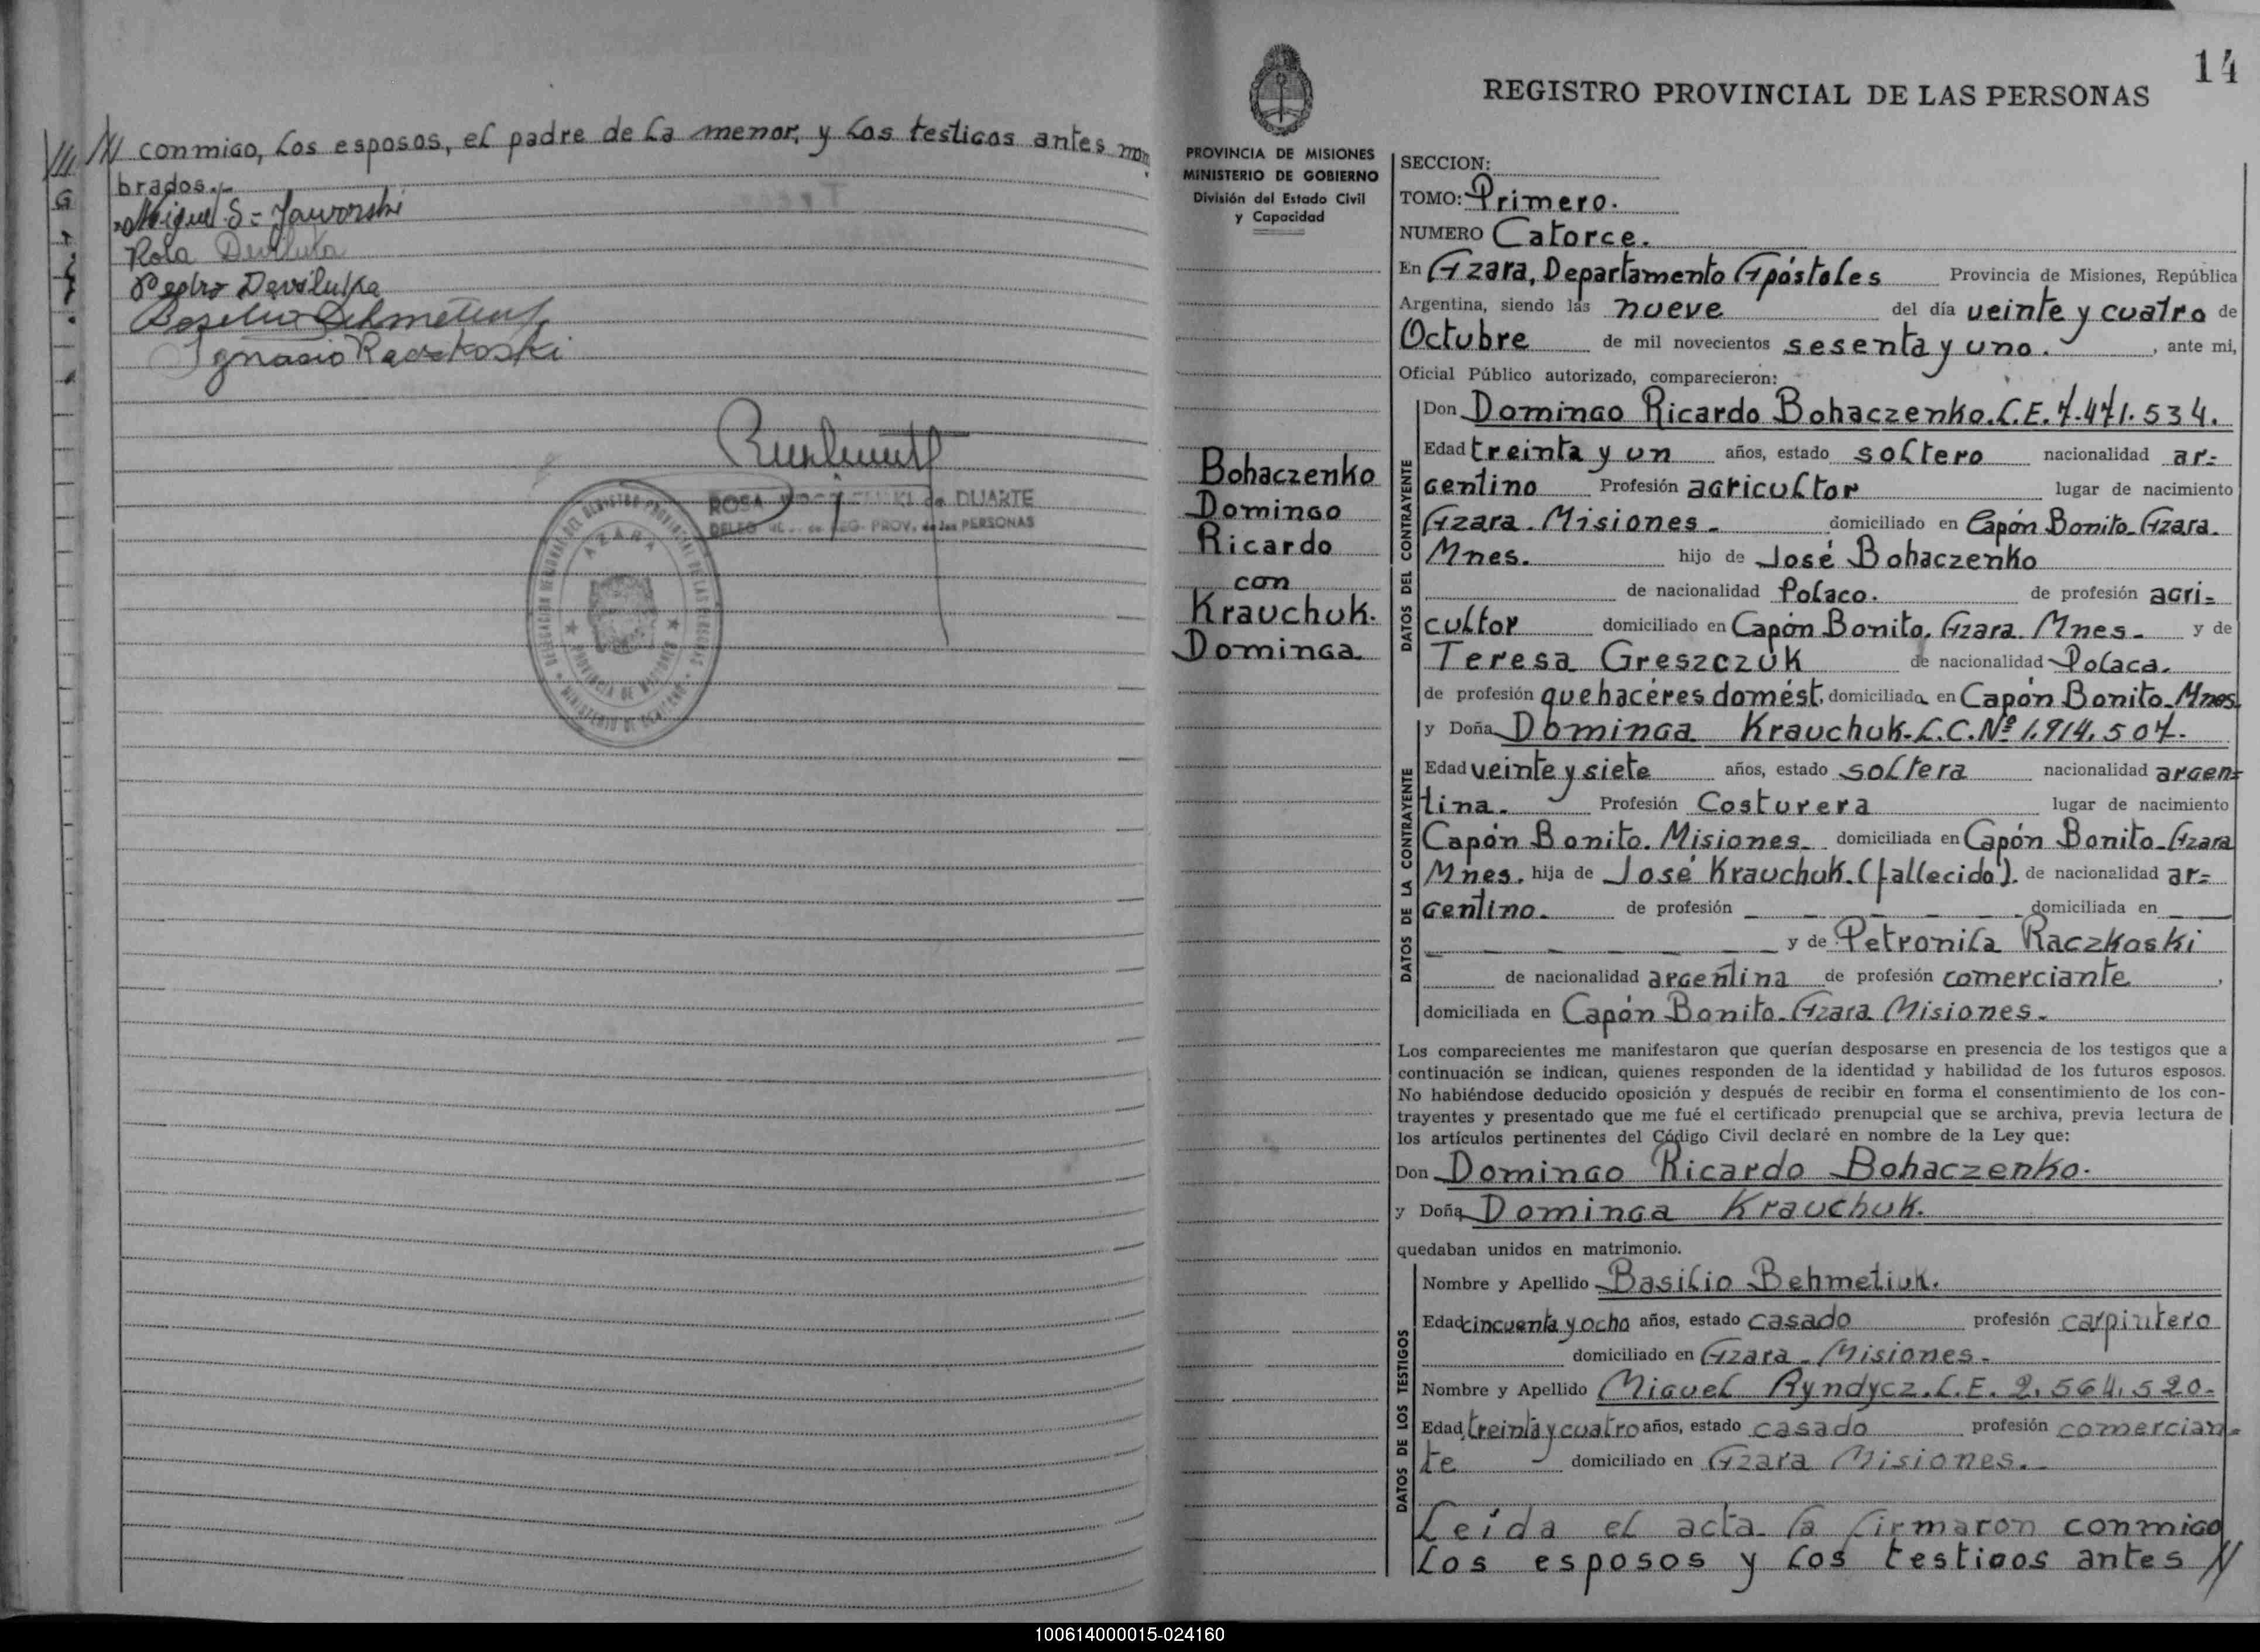 /// conmigo, los esposos, el padre de la menor, y los testigos antes nom
brados.-
Miguel S = Jaworski
Rosa Deviluka
Pedro Deviluka
Basilio Behmetiuk
Ignacio Raczkoski
ROSA de DUARTE
REG. PROV. de las PERSONAS
DELEGACION REGIONAL DEL REGISTRO PROVINCIAL DE LAS PERSONAS
AZARA
PROVINCIA DE MISIONES
MINISTERIO DE GOBIERNO
14
REGISTRO PROVINCIAL DE LAS PERSONAS
PROVINCIA DE MISIONES
MINISTERIO DE GOBIERNO
División del Estado Civil
y Capacidad
Bohaczenko
Domingo
Ricardo
con
Krauchuk.
Dominga
SECCION:
TOMO: Primero.
NUMERO Catorce.
En Azara, Departamento Apóstoles Provincia de Misiones, República
Argentina, siendo las nueve del día veinte y cuatro de
Octubre de mil novecientos sesenta y uno. , ante mi,
Oficial Público autorizado, comparecieron:
DATOS DEL CONTRAYENTE
Don Domingo Ricardo Bohaczenko. L.E. 7.471.534.
Edad treinta y un años, estado soltero nacionalidad ar=
gentino Profesión agricultor lugar de nacimiento
Azara. Misiones. domiciliado en Capón Bonito. Azara.
Mnes. hijo de José Bohaczenko
de nacionalidad Polaco. de profesión agri=
cultor domiciliado en Capón Bonito. Azara. Mnes. y de
Teresa Greszczuk de nacionalidad Polaca.
de profesión quehacéres domést. domiciliada en Capón Bonito. Mnes.
DATOS DE LA CONTRAYENTE
y Doña Dominga Krauchuk. L.C. Nº 1.914.507.
Edad veinte y siete años, estado soltera nacionalidad argen=
tina. Profesión Costurera lugar de nacimiento
Capón Bonito. Misiones. domiciliada en Capón Bonito. Azara
Mnes. hija de José Krauchuk. (fallecido). de nacionalidad ar=
gentino. de profesión _ _ _ _ domiciliada en _ _
_ _ _ _ y de Petronila Raczkoski
de nacionalidad argentina de profesión comerciante ,
domiciliada en Capón Bonito. Azara Misiones.
Los comparecientes me manifestaron que querían desposarse en presencia de los testigos que a
continuación se indican, quienes responden de la identidad y habilidad de los futuros esposos.
No habiéndose deducido oposición y después de recibir en forma el consentimiento de los con-
trayentes y presentado que me fué el certificado prenupcial que se archiva, previa lectura de
los artículos pertinentes del Código Civil declaré en nombre de la Ley que:
Don Domingo Ricardo Bohaczenko.
y Doña Dominga Krauchuk.
quedaban unidos en matrimonio.
DATOS DE LOS TESTIGOS
Nombre y Apellido Basilio Behmetiuk.
Edad cincuenta y ocho años, estado casado profesión carpintero
domiciliado en Azara. Misiones.
Nombre y Apellido Miguel Ryndycz. L.E. 2.564.520.
Edad treinta y cuatro años, estado casado profesión comercian=
te domiciliado en Azara Misiones.
Leída el acta la firmaron conmigo
los esposos y los testigos antes //
100614000015-024160